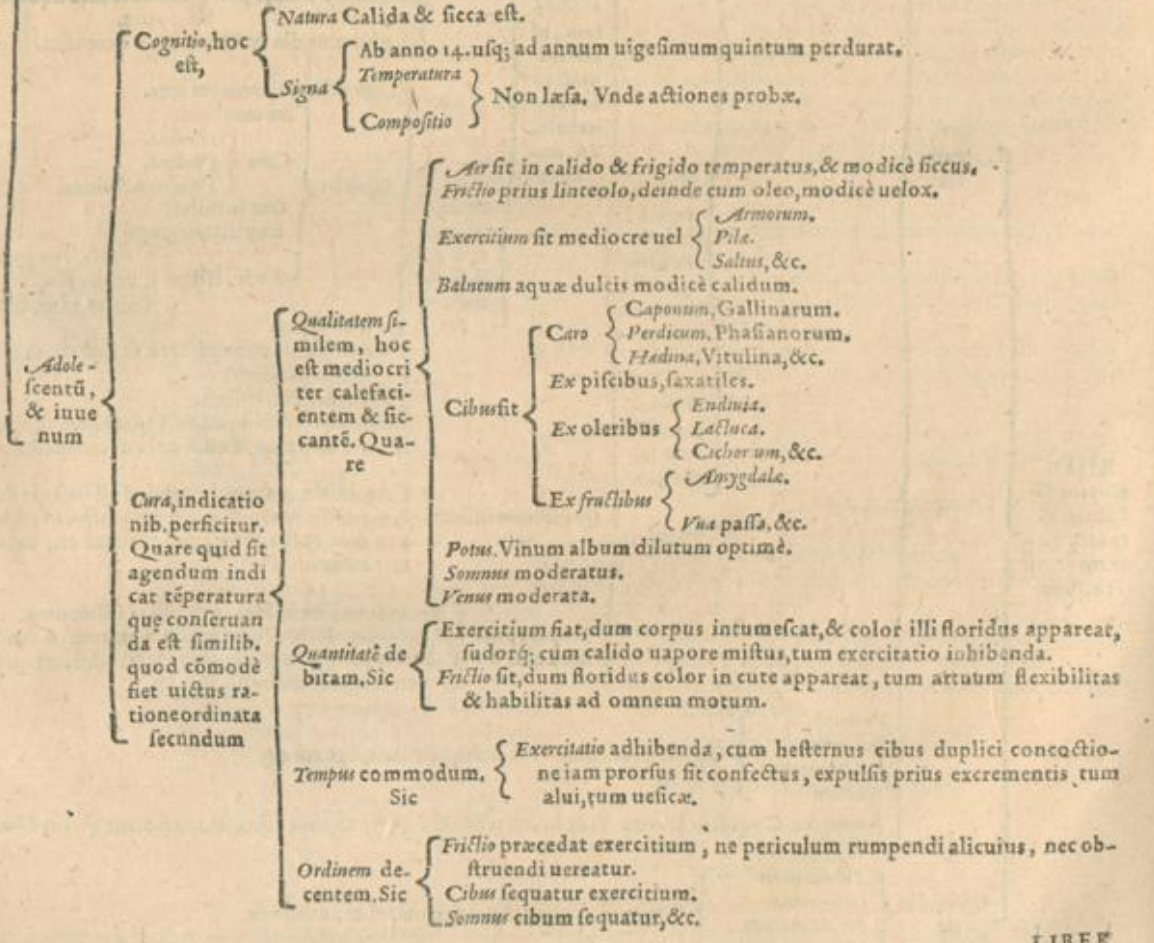 Adole-
ſcentū,
& iuue
num
Cognitio, hoc
eſt,
Natura Calida & ſicca eſt.
Signa
Ab anno 14. uſq; ad annum uigeſimumquintum perdurat.
Temperatura
Compoſitio
Non læſa. Vnde actiones probæ.
Cura, indicatio
nib. perficitur.
Quare quid ſit
agendum indi
cat tēperatura
quę conſeruan
da eſt ſimilib.
quod cōmodè
fiet uictus ra-
tione ordinata
ſecundum
Qualitatem ſi-
milem, hoc
eſt mediocri
ter calefaci-
entem & ſic-
cantē. Qua-
re
Aer ſit in calido & frigido temperatus, & modicè ſiccus.
Frictio prius linteolo, deinde cum oleo, modicè uelox.
Exercitium ſit mediocre uel
Armorum.
Pilæ.
Saltus, &c.
Balneum aquæ dulcis modicè calidum.
Cibus ſit
Caro
Caponum, Gallinarum.
Perdicum, Phaſianorum.
Hædina, Vitulina, &c.
Ex piſcibus, ſaxatiles.
Ex oleribus
Endiuia.
Lactuca.
Cichorium, &c.
Ex fructibus
Amygdalæ.
Vua paſſa, &c.
Potus. Vinum album dilutum optimè.
Somnus moderatus.
Venus moderata.
Quantitatē de
bitam. Sic
Exercitium fiat, dum corpus intumeſcat, & color illi floridus appareat,
ſudorq; cum calido uapore miſtus, tum exercitatio inhibenda.
Frictio ſit, dum floridus color in cute appareat, tum artuum flexibilitas
& habilitas ad omnem motum.
Tempus commodum.
Sic
Exercitatio adhibenda, cum heſternus cibus duplici concoctio-
ne iam prorſus ſit confectus, expulſis prius excrementis tum
alui, tum ueſicæ.
Ordinem de-
centem. Sic
Frictio præcedat exercitium, ne periculum rumpendi alicuius, nec ob-
ſtruendi uereatur.
Cibus ſequatur exercitium.
Somnus cibum ſequatur, &c.
LIBER